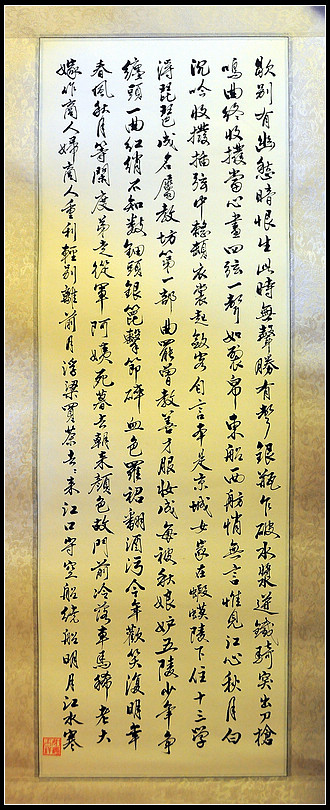 歇別有幽愁暗恨生此時無聲勝有聲銀瓶乍破水漿迸鐵騎突出刀槍
鳴曲終收撥當心畫四弦一聲如裂帛東船西舫悄無言惟見江心秋月白
沉吟收撥插弦中整頓衣裳起斂容自言本是京城女家在蝦蟆陵下住十三學
得琵琶成名屬教坊第一部曲罷曾教善才服妝成每被秋娘妒五陵少年爭
纏頭一曲紅綃不知數鈿頭銀篦擊節碎血色羅裙翻酒污今年歡笑復明年
春風秋月等閒度弟走從軍阿姨死暮去朝來顏色故門前冷落車馬稀老大
嫁作商人婦商人重利輕別離前月浮梁買茶去々來江口守空船繞船明月江水寒